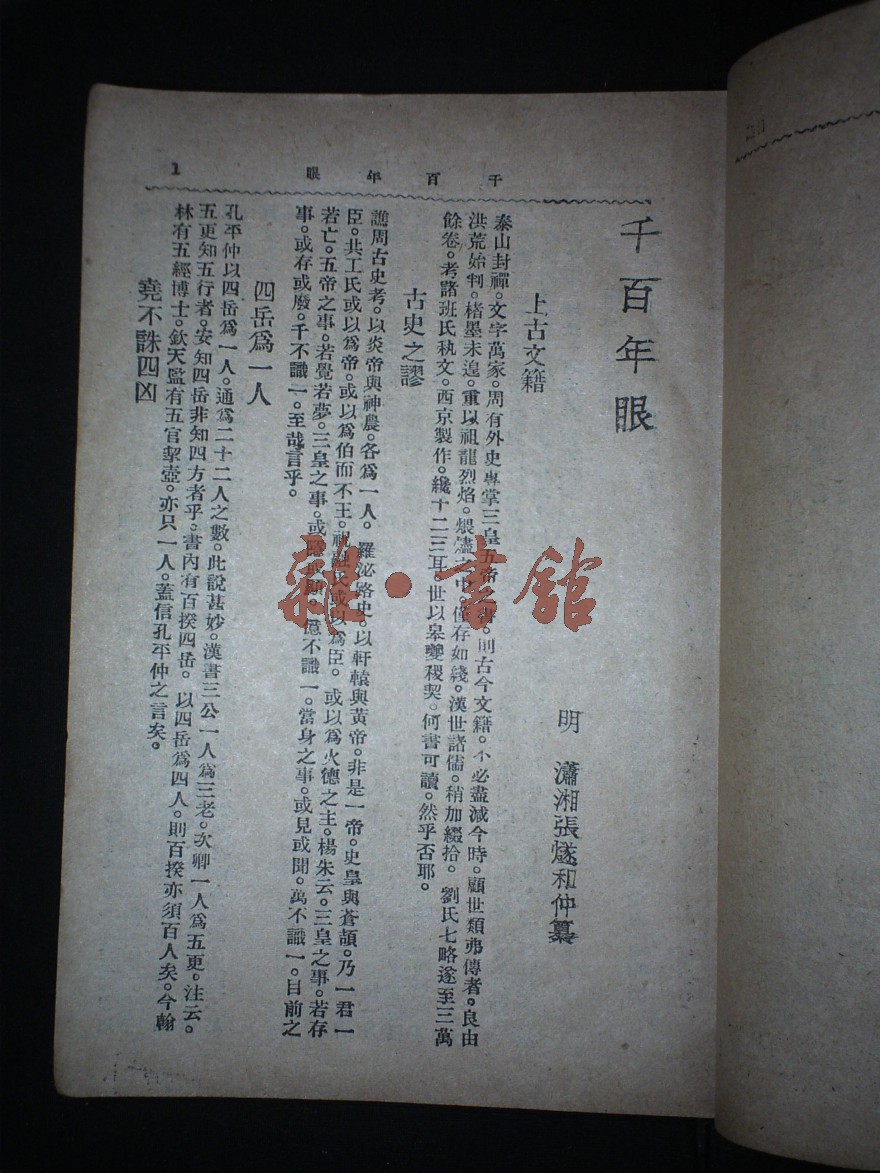 千百年眼
1
千百年眼
明 瀟湘張燧和仲纂
上古文籍
泰山封禪。文字萬家。周有外史專掌三皇五帝之書。則古今文籍。不必盡減今時。顧世類弗傳者。良由
洪荒始判。楮墨未遑。重以祖龍烈焰。煨燼之中。僅存如綫。漢世諸儒。稍加綴拾。劉氏七略遂至三萬
餘卷。考諸班氏執文。西京製作。纔十二三耳。世以皋夔稷契。何書可讀。然乎否耶。
古史之謬
譙周古史考。以炎帝與神農。各爲一人。羅泌路史。以軒轅與黃帝。非是一帝。史皇與蒼頡。乃一君一
臣。共工氏或以爲帝。或以爲伯而不王。祝融氏或以爲臣。或以爲火德之主。楊朱云。三皇之事。若存
若亡。五帝之事。若覺若夢。三皇之事。或隱或顯。億不識一。當身之事。或見或聞。萬不識一。目前之
事。或存或廢。千不識一。至哉言乎。
四岳爲一人
孔平仲以四岳爲一人。通爲二十二人之數。此說甚妙。漢書三公一人爲三老。次卿一人爲五更。注云。
五更知五行者。安知四岳非知四方者乎。書內有百揆四岳。以四岳爲四人。則百揆亦須百人矣。今翰
林有五經博士。欽天監有五官挈壺。亦只一人。蓋信孔平仲之言矣。
堯不誅四凶
雜·書館